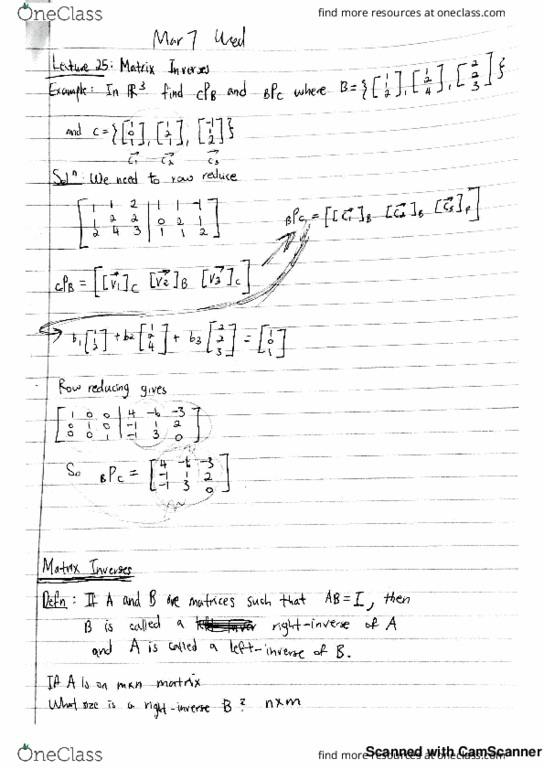 OneClass
find more resources at oneclass.com
Mar 7 Wed
Lecture 25: Matrix Inverses
Example: In ℝ³ find cPB and BPc where B = {[1 1 2], [1 2 4], [2 2 3]}
and C = {[1 0 1], [1 2 1], [-1 1 2]}
c⃗1 c⃗2 c⃗3
Solⁿ: We need to row reduce
[1 1 2 | 1 1 -1]
[1 2 2 | 0 2 1]
[2 4 3 | 1 1 2]
BPc = [[c⃗1]B [c⃗2]B [c⃗3]
cPB = [[v⃗1]C [v⃗2]B [v⃗3]C]
b1 [1 1 2] + b2 + b3 [2 2 3] = [1 0 1]
Row reducing gives
[1 0 0 | 4 -6 -3]
[0 1 0 | -1 1 2]
[0 0 1 | -1 3 0]
So BPc = [4 -6 -3]
[-1 1 2]
[-1 3 0]
Matrix Inverses
Defn: If A and B are matrices such that AB = I, then
B is called a right-inverse of A
and A is called a left-inverse of B.
If A is an mxn matrix
What size is a right-inverse B? nxm
Scanned with CamScanner
OneClass
find more resources at oneclass.com